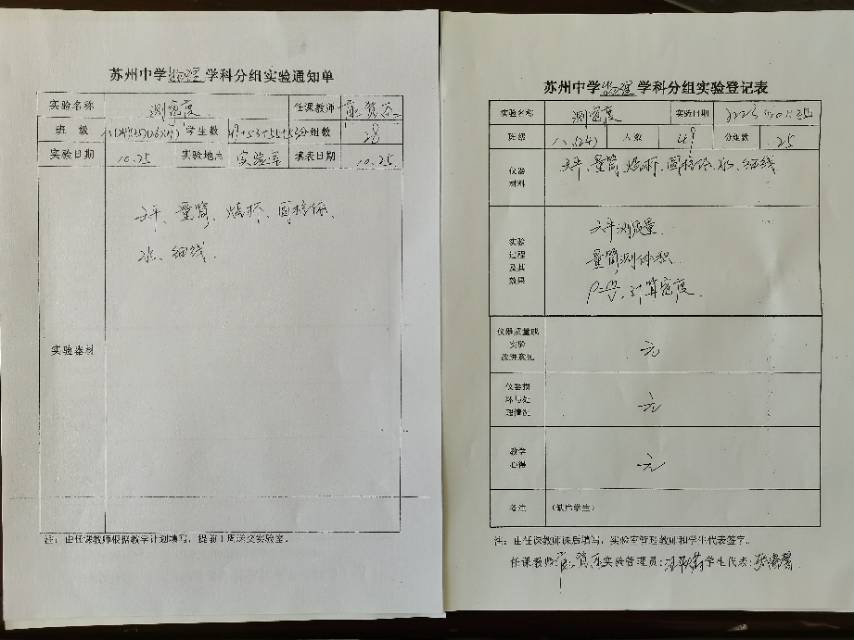 苏州中学物理学科分组实验通知单
实验名称 测密度 任课教师
班 级 学生数 分组数 28
实验日期 10.25 实验地点 实验室 填表日期 10.25
天平、量筒、烧杯、固体
水、细线.
实验器材
注：由任课教师根据教学计划填写，提前1周送交实验室。
苏州中学物理学科分组实验登记表
实验名称 测密度 实验日期
班级 人数 49 分组数 25
仪器
材料
天平、量筒、烧杯、固体、水、细线
实验
过程
及其
效果
天平测质量
量筒测体积
ρ=m/V，计算密度.
仪器质量或
实验
改进意见
无
仪器损
坏与处
理情况
无
教学
心得
无
备注
注：由任课教师课后填写，实验室管理教师和学生代表签字。
任课教师: 实验管理员: 学生代表: